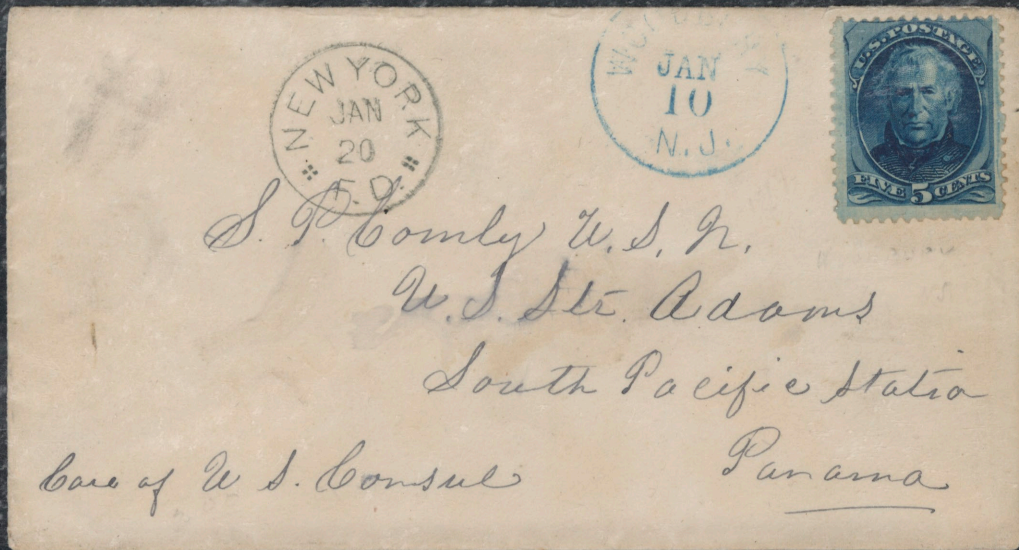 NEW YORK
JAN
20
F.D.
JAN
10
N.J.
U.S. POSTAGE
FIVE 5 CENTS
S. P. Comly U.S.N.
U.S. Str. Adams
South Pacific Statio
Panama
Care of U S. Consul